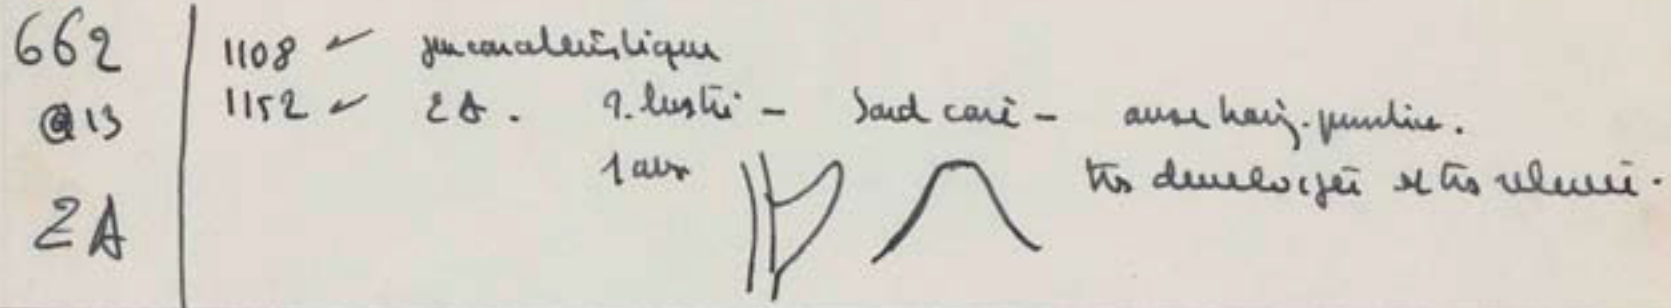 662
@13
2A
1108 peu caractéristique
1152 2A. q. lustré - bord carré - anse horiz.
1 anse
très développée et très relevée.